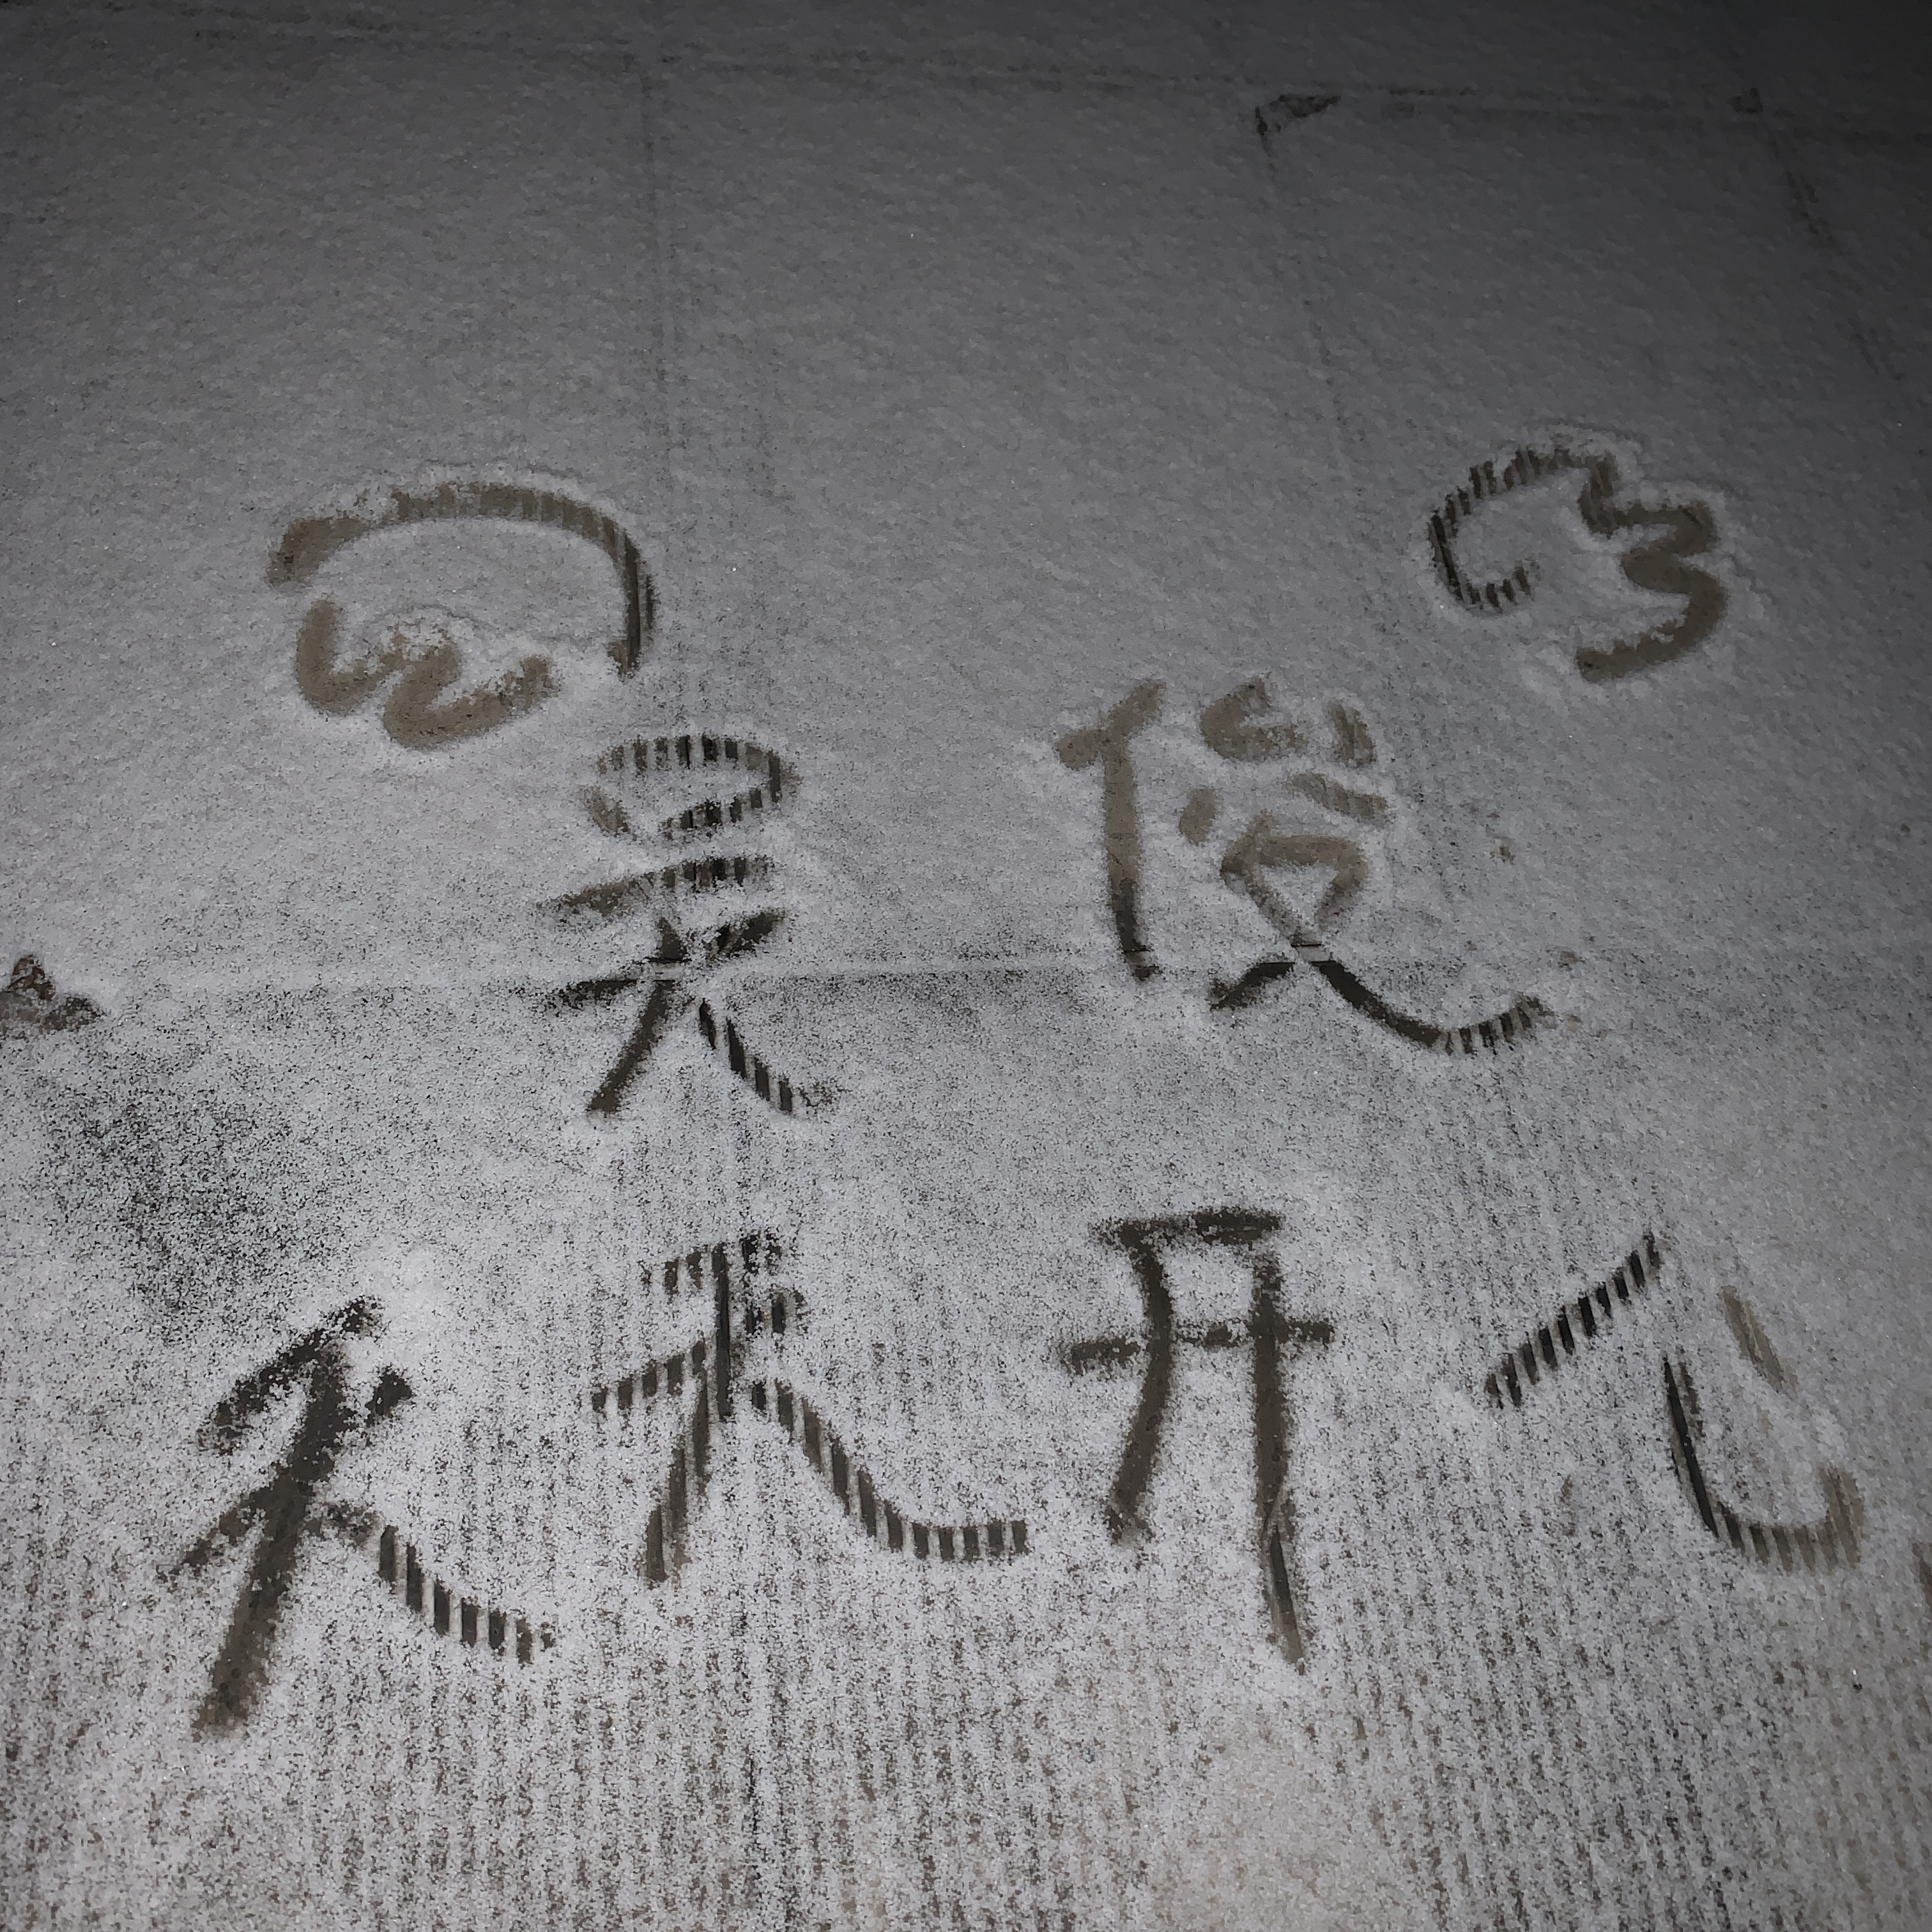 吴俊
天天开心